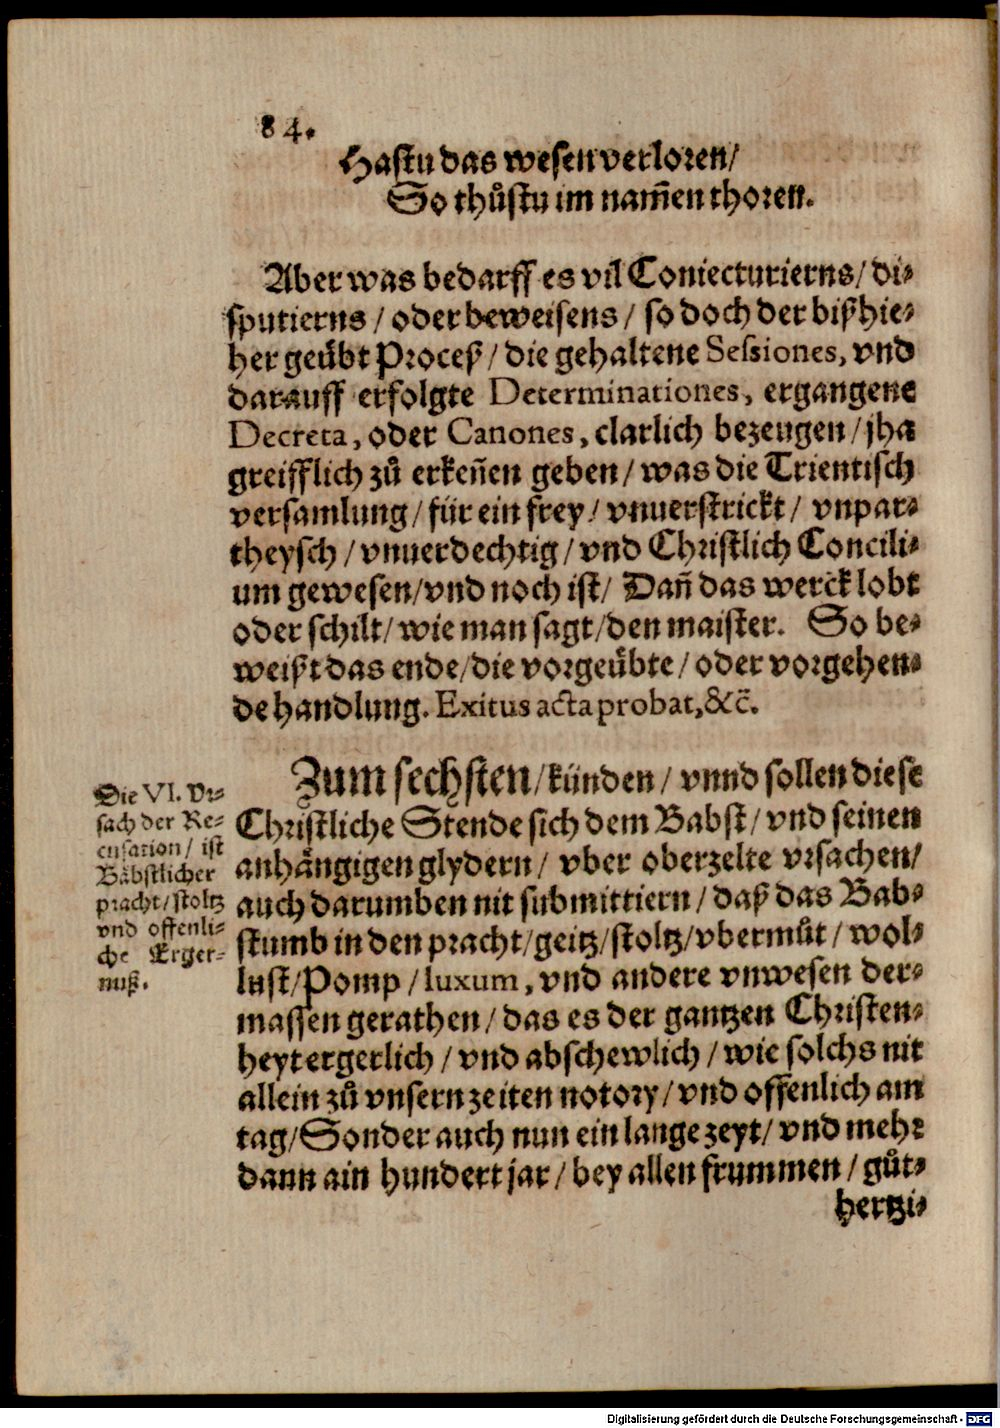 84.
Hastu das wesen verloren/
So thůstu im nam̃en thoren.
Aber was bedarff es vil Coniecturierns/ di-
sputierns / oder beweisens / so doch der bißhie-
her geůbt Proceß / die gehaltene Sessiones, vnd
darauff erfolgte Determinationes, ergangene
Decreta, oder Canones, clarlich bezeugen / jha
greifflich zů erkeñen geben / was die Trientisch
versamlung / für ein frey / vnuerstrickt / vnpar-
theysch / vnuerdechtig / vnd Christlich Concili-
um gewesen/vnd noch ist/ Dañ das werck lobt
oder schilt/ wie man sagt/den maister. So be-
weißt das ende/die vorgeůbte / oder vorgehen-
de handlung. Exitus acta probat, &c̃.
Zum sechsten/künden / vnnd sollen diese
Christliche Stende sich dem Babst/ vnd seinen
anhängigen glydern / vber oberzelte vrsachen/
auch darumben nit submittiern / daß das Bab-
stumb in den pracht/geitz/stoltz/vbermůt / wol-
lust/Pomp / luxum, vnd andere vnwesen der-
massen gerathen / das es der gantzen Christen-
heyt ergerlich / vnd abschewlich / wie solchs nit
allein zů vnsern zeiten notory / vnd offenlich am
tag/Sonder auch nun ein lange zeyt/ vnd mehr
dann ain hundert jar / bey allen frummen / gůt-
hertzi-
Die VI. Vr-
sach der Re-
cusation / ist
Bäbstlicher
pracht/stoltz
vnd offenli-
che Erger-
nuß.
Digitalisierung gefördert durch die Deutsche Forschungsgemeinschaft - DFG